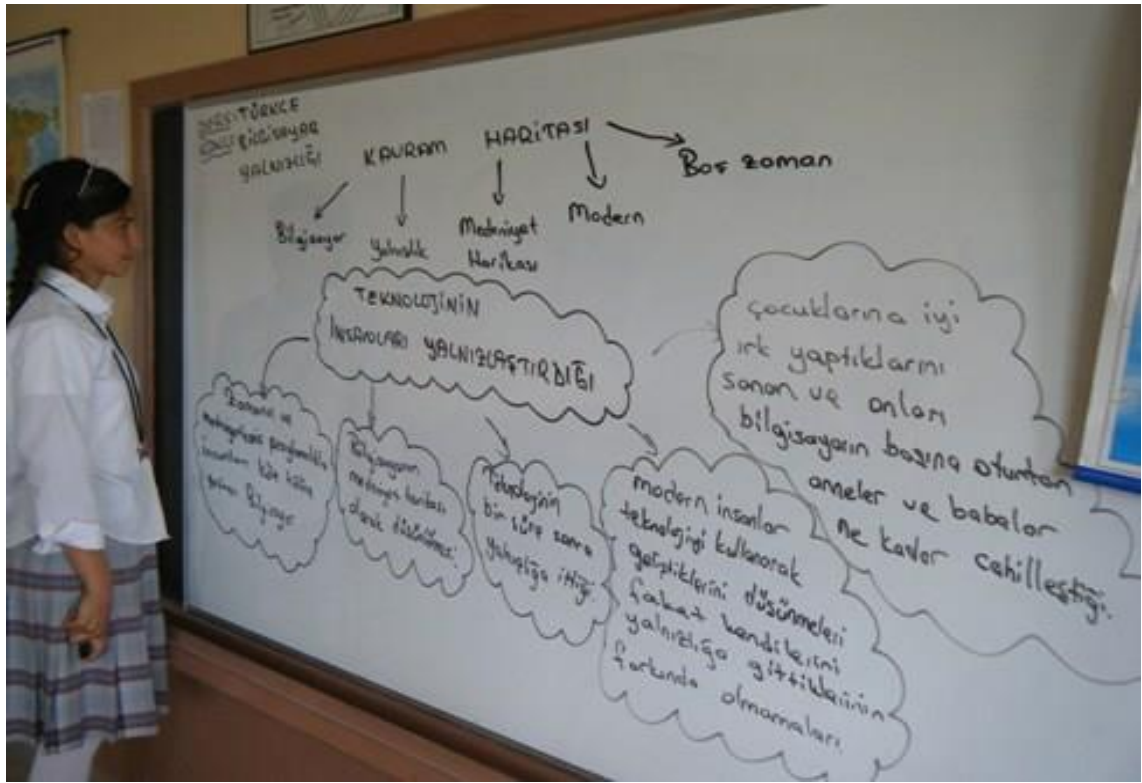 DERS: TÜRKÇE
KONU: BİLGİSAYAR
YALNIZLIĞI
KAVRAM HARİTASI
Bilgisayar
Yalnızlık
Medeniyet
Harikası
Modern
Boş zaman
TEKNOLOJİNİN
İNSANLARI YALNIZLAŞTIRDIĞI
insanları
Bilgisayar
Bilgisayarın
medeniyet harikası
olarak düşünülmesi.
Teknolojinin
bir süre sonra
yalnızlığa ittiği
modern insanlar
teknolojiyi kullanarak
geliştiklerini düşünmeleri
fakat kendilerini
yalnızlığa gittiklerinin
farkında olmamaları
çocuklarına iyi
ırk yaptıklarını
sanan ve onları
bilgisayarın başına oturtan
anneler ve babalar
ne kadar cahilleştiği.